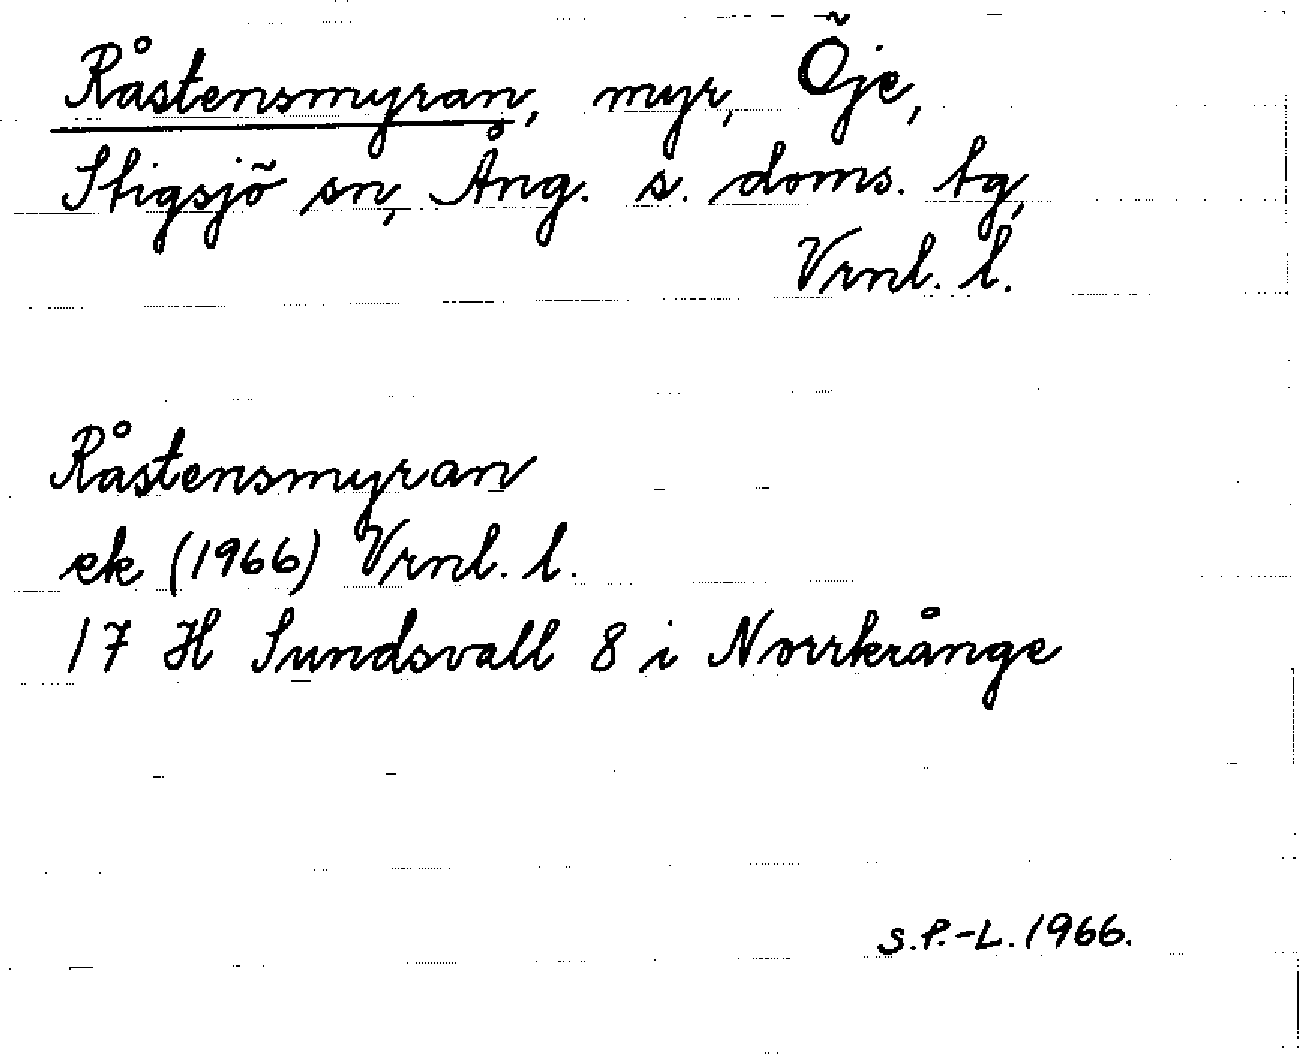 Råstensmyran, myr, Öje,
Stigsjö sn, Ång. s. doms. tg,
Vrnl. l.
Råstensmyran
ek (1966) Vrnl. l.
17 H Sundsvall 8 i Norrkrånge
S.P.-L. 1966.